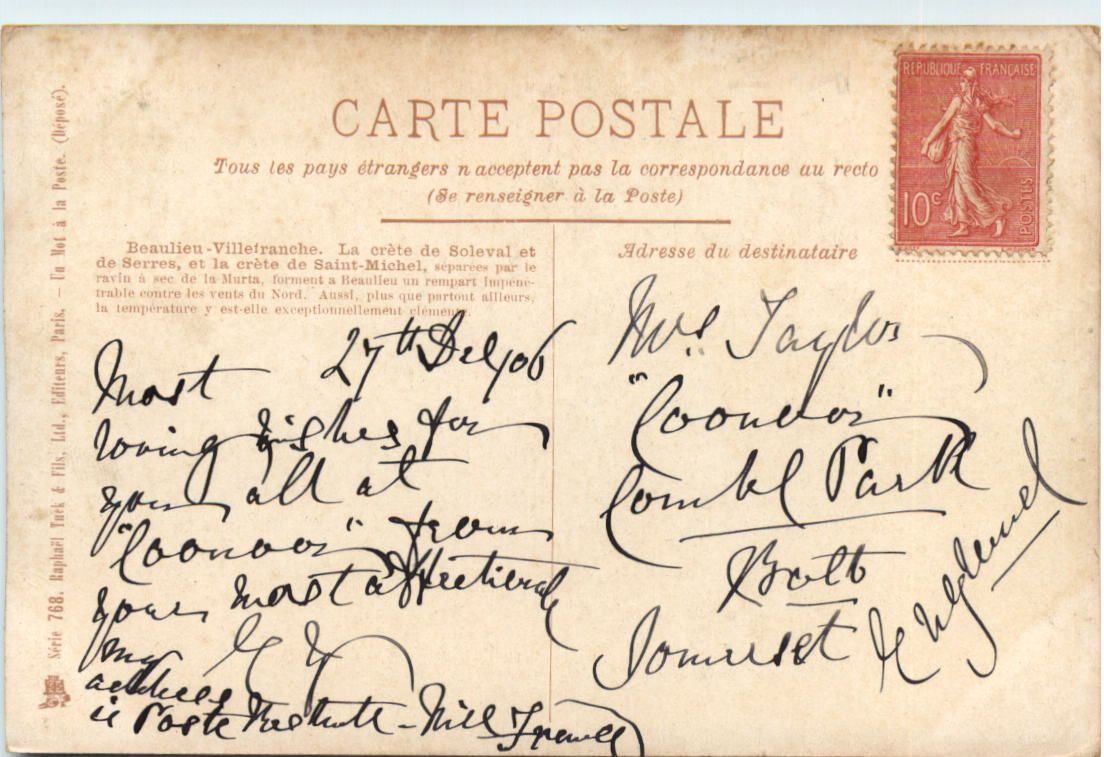 CARTE POSTALE
Tous les pays étrangers n'acceptent pas la correspondance au recto
(Se renseigner à la Poste)
REPUBLIQUE FRANÇAISE
10c
POSTES
Beaulieu-Villefranche. La crète de Soleval et
de Serres, et la crète de Saint-Michel, séparées par le
ravin à sec de la Murta, forment à Beaulieu un rempart impéné-
trable contre les vents du Nord. Aussi, plus que partout ailleurs,
la température y est-elle exceptionnellement clémente.
27th Dec/06
Most
loving wishes for
you all at
"Coonoor" from
your most affectionate
my
address
is Poste Restante - Nice France
Adresse du destinataire
Mrs. Taylor
"Coonoor"
Combe Park
Bath
Somerset
England
Série 768. Raphaël Tuck & Fils, Ltd., Editeurs, Paris. — Un Mot à la Poste. (Déposé).